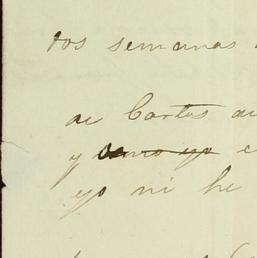 dos semanas
de Cartas de
y como yo
yo ni he